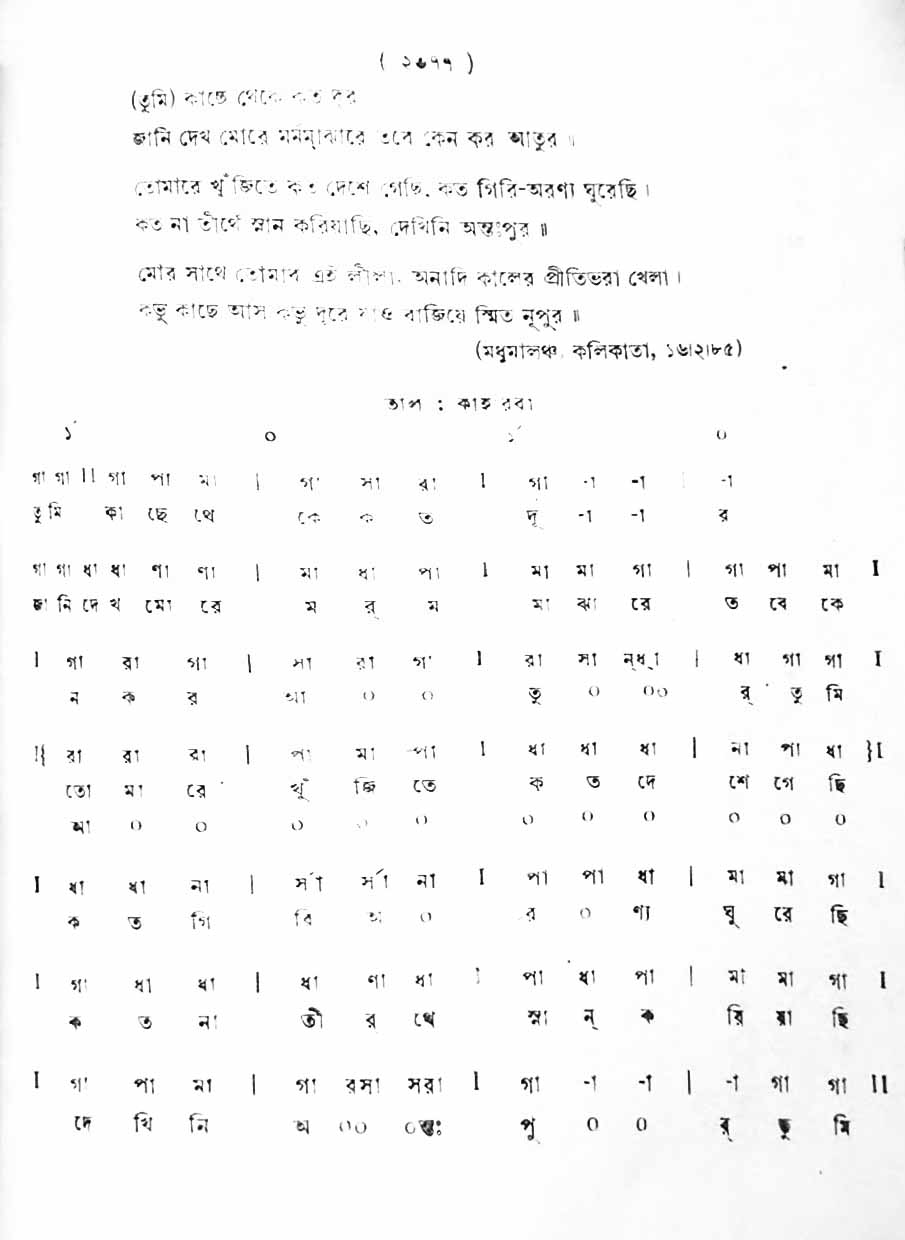 ( ২৬৭৭ )
(তুমি) কাছে থেকে কত দূর
জানি দেখ মোরে মর্মমাঝারে তবে কেন কর আতুর ॥
তোমারে খুঁজিতে কত দেশে গেছি, কত গিরি-অরণ্য ঘুরেছি ।
কত না তীর্থে স্নান করিয়াছি, দেখিনি অন্তঃপুর ॥
মোর সাথে তোমার এই লীলা, অনাদি কালের প্রীতিভরা খেলা ।
কভু কাছে আস কভু দূরে যাও বাজিয়ে স্মিত নূপুর ॥
(মধুমালঞ্চ, কলিকাতা, ১৬।২।৮৫)
তাল : কাহারবা
১´ ০ ১´ ০
গা গা II গা পা মা | গা সা রা I গা -া -া | -া
তু মি কা ছে থে কে ক ত দূ -া -া র
গা গা ধা ধা ণা ণা | মা ধা পা I মা মা গা | গা পা মা I
জা নি দে খ মো রে ম র্ ম মা ঝা রে ত বে কে
I গা রা গা | সা রা গা I রা সা ন্ধ্া | ধা গা গা I
ন ক র আ ০ ০ তু ০ ০০ র্ তু মি
II{ রা রা রা | পা মা -পা I ধা ধা ধা | না পা ধা }I
তো মা রে খুঁ জি তে ক ত দে শে গে ছি
আ ০ ০ ০ ০ ০ ০ ০ ০ ০ ০ ০
I ধা ধা না | র্সা র্সা না I পা পা ধা | মা মা গা I
ক ত গি রি অ ০ র ০ ণ্য ঘু রে ছি
I গা ধা ধা | ধা ণা ধা I পা ধা পা | মা মা গা I
ক ত না তী র থে স্না ন্ ক রি য়া ছি
I গা পা মা | গা রসা সরা I গা -া -া | -া গা গা II
দে খি নি অ ০০ ০ন্তঃ পু ০ ০ র্ তু মি